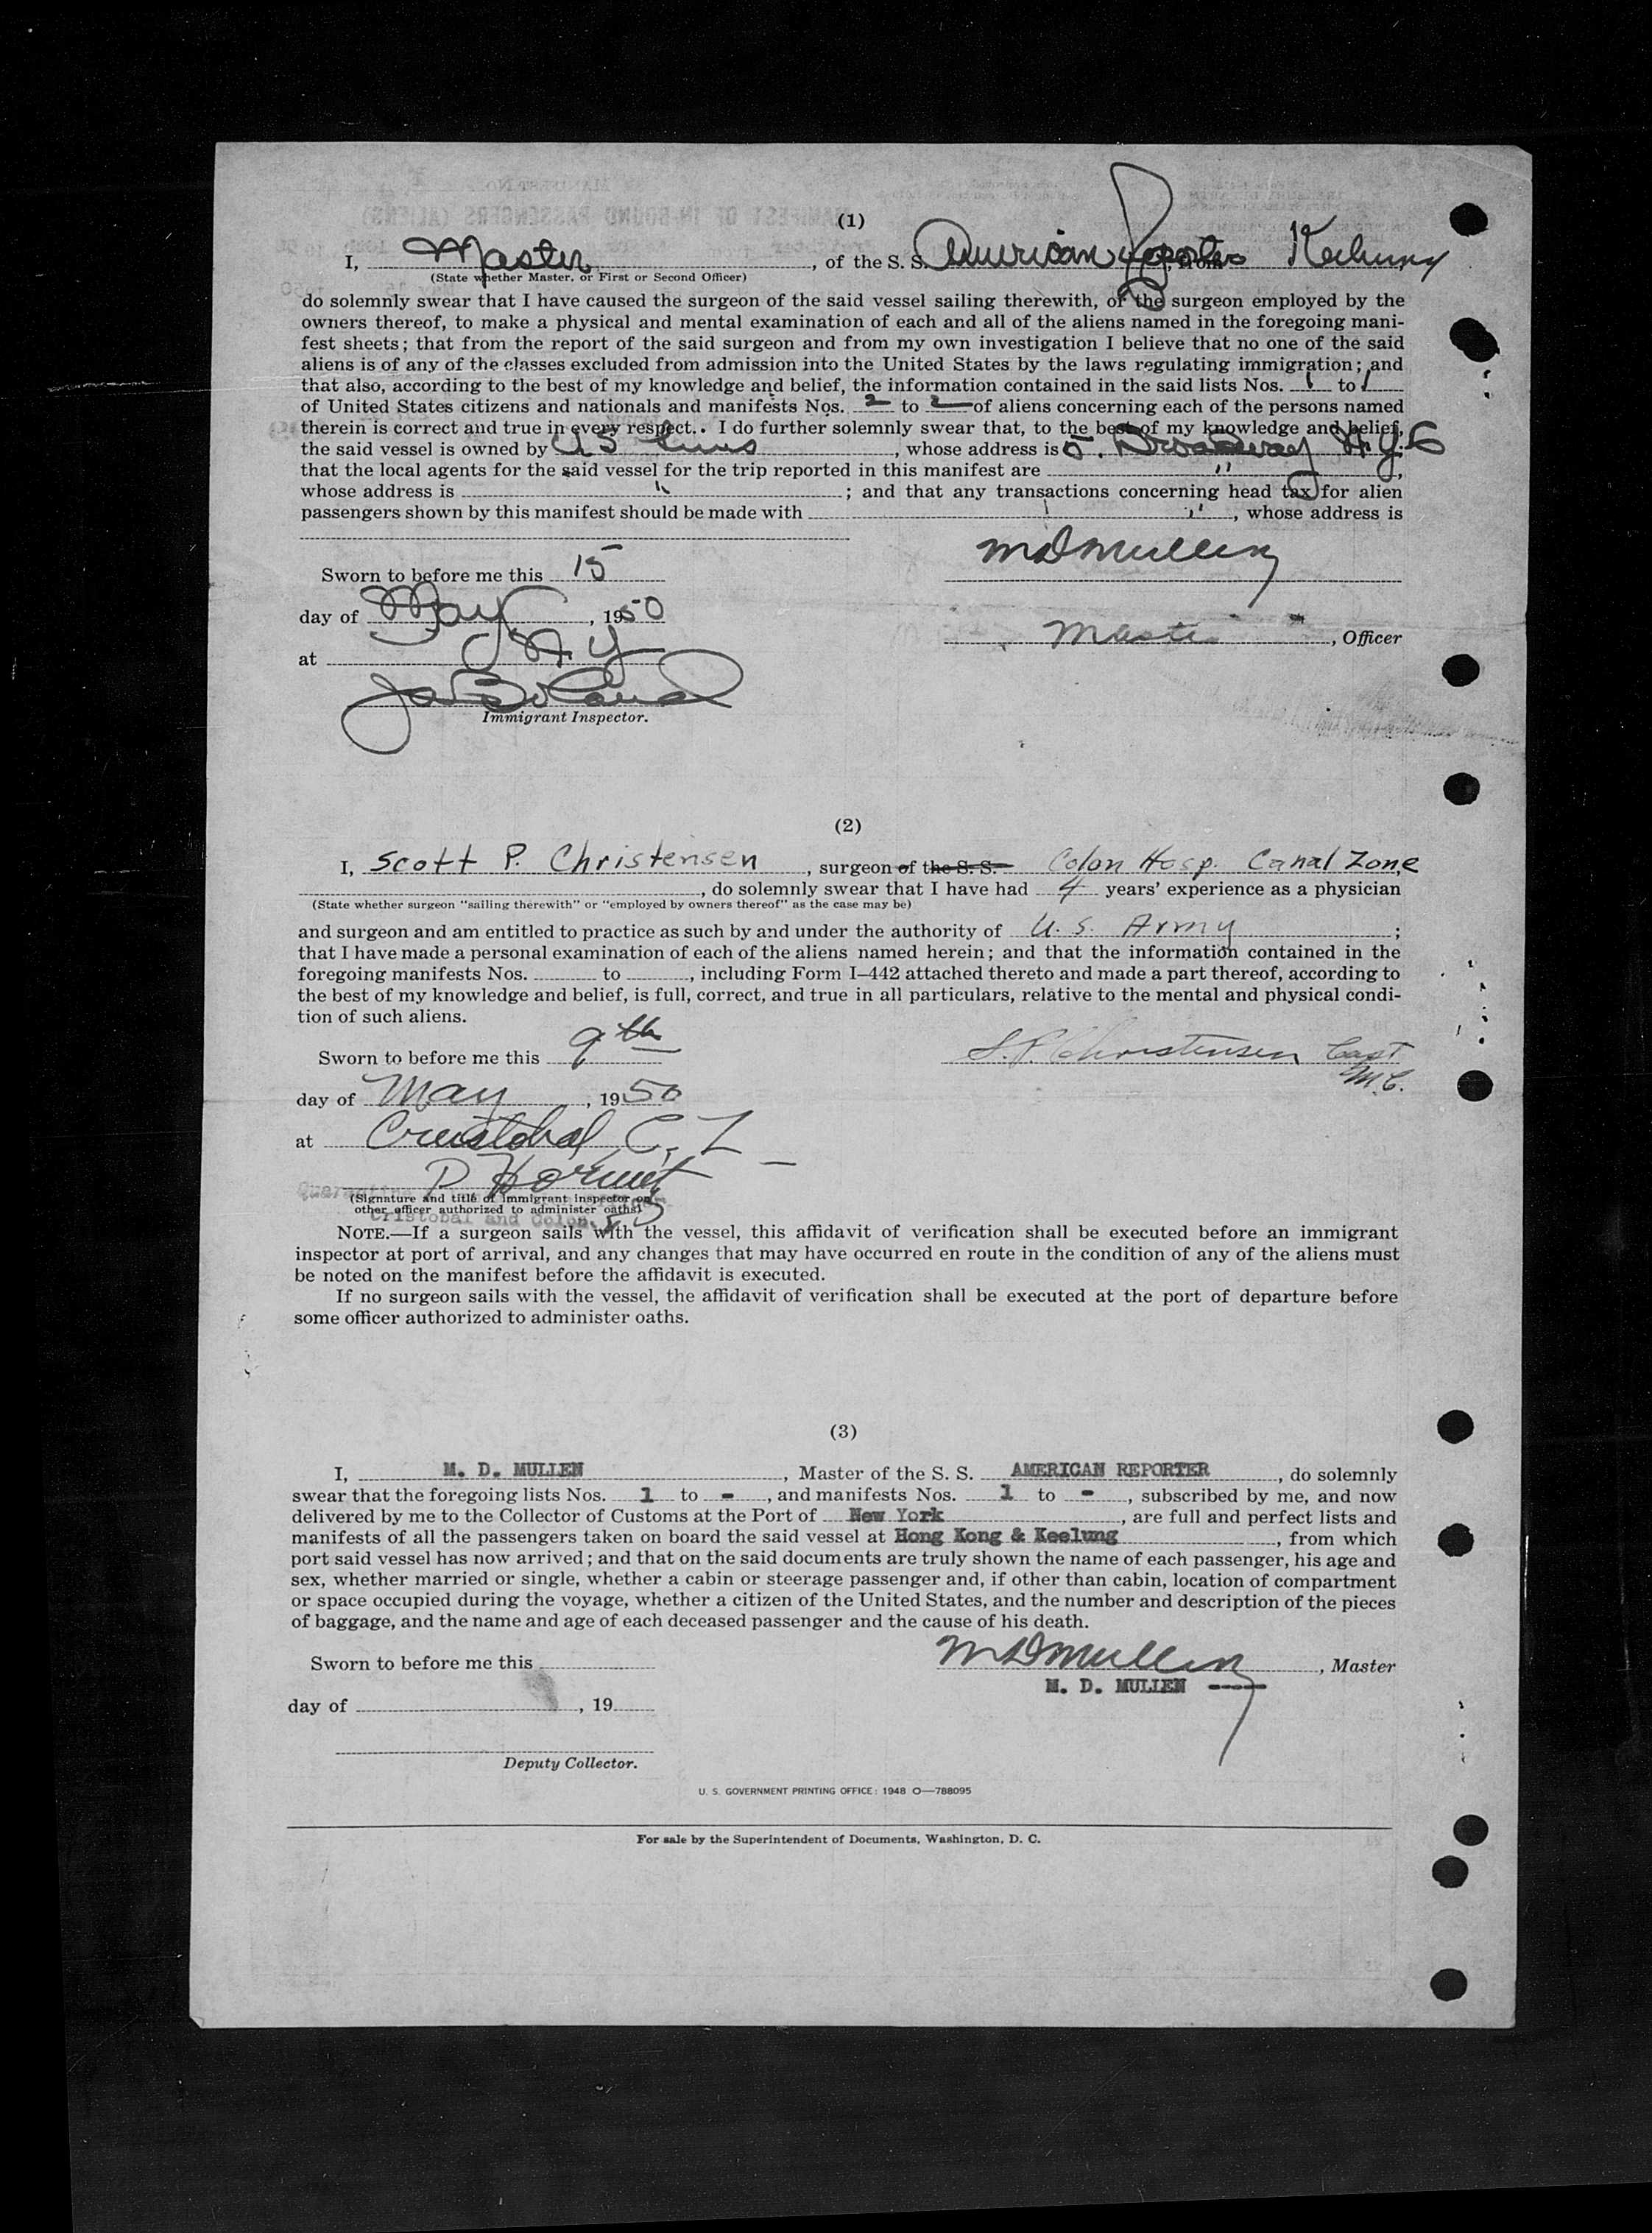 (1)
I, Master, of the S. S. American Reporter, from Keelung
(State whether Master, or First or Second Officer)
do solemnly swear that I have caused the surgeon of the said vessel sailing therewith, or the surgeon employed by the
owners thereof, to make a physical and mental examination of each and all of the aliens named in the foregoing mani-
fest sheets; that from the report of the said surgeon and from my own investigation I believe that no one of the said
aliens is of any of the classes excluded from admission into the United States by the laws regulating immigration; and
that also, according to the best of my knowledge and belief, the information contained in the said lists Nos. 1 to 1
of United States citizens and nationals and manifests Nos. 2 to 2 of aliens concerning each of the persons named
therein is correct and true in every respect. I do further solemnly swear that, to the best of my knowledge and belief,
the said vessel is owned by U S Lines, whose address is 5. Broadway N.Y.C
that the local agents for the said vessel for the trip reported in this manifest are ",
whose address is "; and that any transactions concerning head tax for alien
passengers shown by this manifest should be made with ", whose address is
Sworn to before me this 15
MDMullen
day of May, 1950
Master, Officer
at N Y
Immigrant Inspector.
(2)
I, Scott P. Christensen, surgeon of the S. S. Colon Hosp. Canal Zone,
, do solemnly swear that I have had 4 years' experience as a physician
(State whether surgeon "sailing therewith" or "employed by owners thereof" as the case may be)
and surgeon and am entitled to practice as such by and under the authority of U. S. Army;
that I have made a personal examination of each of the aliens named herein; and that the information contained in the
foregoing manifests Nos. to , including Form I–442 attached thereto and made a part thereof, according to
the best of my knowledge and belief, is full, correct, and true in all particulars, relative to the mental and physical condi-
tion of such aliens.
Sworn to before me this 9th
S. P. Christensen Capt
M.C.
day of May, 1950
at Cristobal C. Z
(Signature and title of immigrant inspector or
other officer authorized to administer oaths)
Cristobal and Colon
NOTE.—If a surgeon sails with the vessel, this affidavit of verification shall be executed before an immigrant
inspector at port of arrival, and any changes that may have occurred en route in the condition of any of the aliens must
be noted on the manifest before the affidavit is executed.
If no surgeon sails with the vessel, the affidavit of verification shall be executed at the port of departure before
some officer authorized to administer oaths.
(3)
I, M. D. MULLEN, Master of the S. S. AMERICAN REPORTER, do solemnly
swear that the foregoing lists Nos. 1 to -, and manifests Nos. 1 to -, subscribed by me, and now
delivered by me to the Collector of Customs at the Port of New York, are full and perfect lists and
manifests of all the passengers taken on board the said vessel at Hong Kong & Keelung, from which
port said vessel has now arrived; and that on the said documents are truly shown the name of each passenger, his age and
sex, whether married or single, whether a cabin or steerage passenger and, if other than cabin, location of compartment
or space occupied during the voyage, whether a citizen of the United States, and the number and description of the pieces
of baggage, and the name and age of each deceased passenger and the cause of his death.
Sworn to before me this
MDMullen, Master
M. D. MULLEN
day of , 19
Deputy Collector.
U. S. GOVERNMENT PRINTING OFFICE: 1948 O—788095
For sale by the Superintendent of Documents, Washington, D. C.